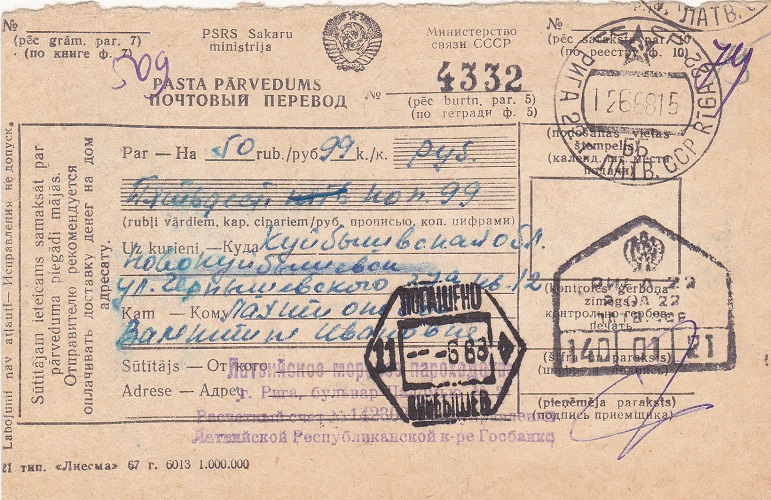 №
(pēc grām. par. 7)
(по книге ф. 7)
309
PSRS Sakaru
ministrija
Министерство
связи СССР
№
(pēc saraksta par. 10)
(по реестру ф. 10)
ЛАТВ.
PASTA PĀRVEDUMS
ПОЧТОВЫЙ ПЕРЕВОД
№ 4332
(pēc burtn. par. 5)
(по тетради ф. 5)
РИГА
RĪGA
ЛАТВ. ССР
1266815
ББ
(nodošanas vietas
štempelis)
(календ. шт. места
подачи)
Labojumi nav atļauti — Исправления не допуск.
Sūtītājam ieteicams samaksāt par
pārveduma piegādi mājās.
Отправителю рекомендуется
оплачивать доставку денег на дом
адресату.
Par — На 50 rub./руб 99 k./к. руб.
Пятьдесят коп. 99
(rubļi vārdiem, kap. cipariem/руб. прописью, коп. цифрами)
Uz kurieni — Куда Куйбышевская обл.
Новокуйбышевск
ул. Чернышевского кв. 12
Kam — Кому
Валентине Ивановне
Sūtītājs — От кого
Adrese — Адрес
Латвийское морское пароходство
г. Рига, бульвар
Расчетный счет №
Латвийской Республиканской к-ре Госбанка
ПОГАШЕНО
11 -6 68
КУЙБЫШЕВ
(kontroles ģerboņa
zīmogs)
(контрольная гербов.
печать)
РИГА 22
RĪGA 22
140 01 21
(šifra un paraksts)
(pieņēmēja paraksts)
(подпись приемщика)
21 тип. «Лиесма» 67 г. 6013 1.000.000